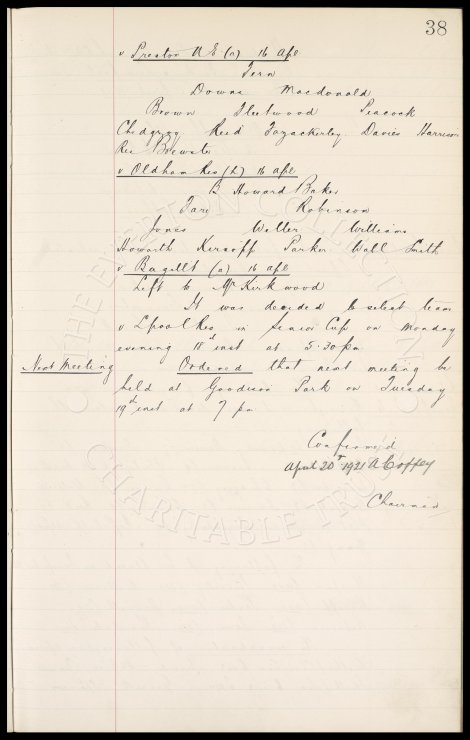 38
v Preston N.E. (a) 16 Apl
Fern
Downs Macdonald
Brown Fleetwood Peacock
Chedgzoy Reid Fazackerley Davies Harrison
Res Brewster
v Oldham Res (h) 16 apl
B Howard Baker
Tare Robinson
Jones Weller Williams
Howarth Kirsopp Parker Wall Smith
v Bagillt (a) 16 apl
Left to Mr Kirkwood
It was decided to select team
v Lpool Res in Senior Cup on Monday
evening 18th inst at 5.30 pm
Next Meeting Ordered that next meeting be
held at Goodison Park on Tuesday
19th inst at 7 pm
Confirmed
April 20th 1921 A Coffey
Chairman
THE EVERTON COLLECTION
CHARITABLE TRUST